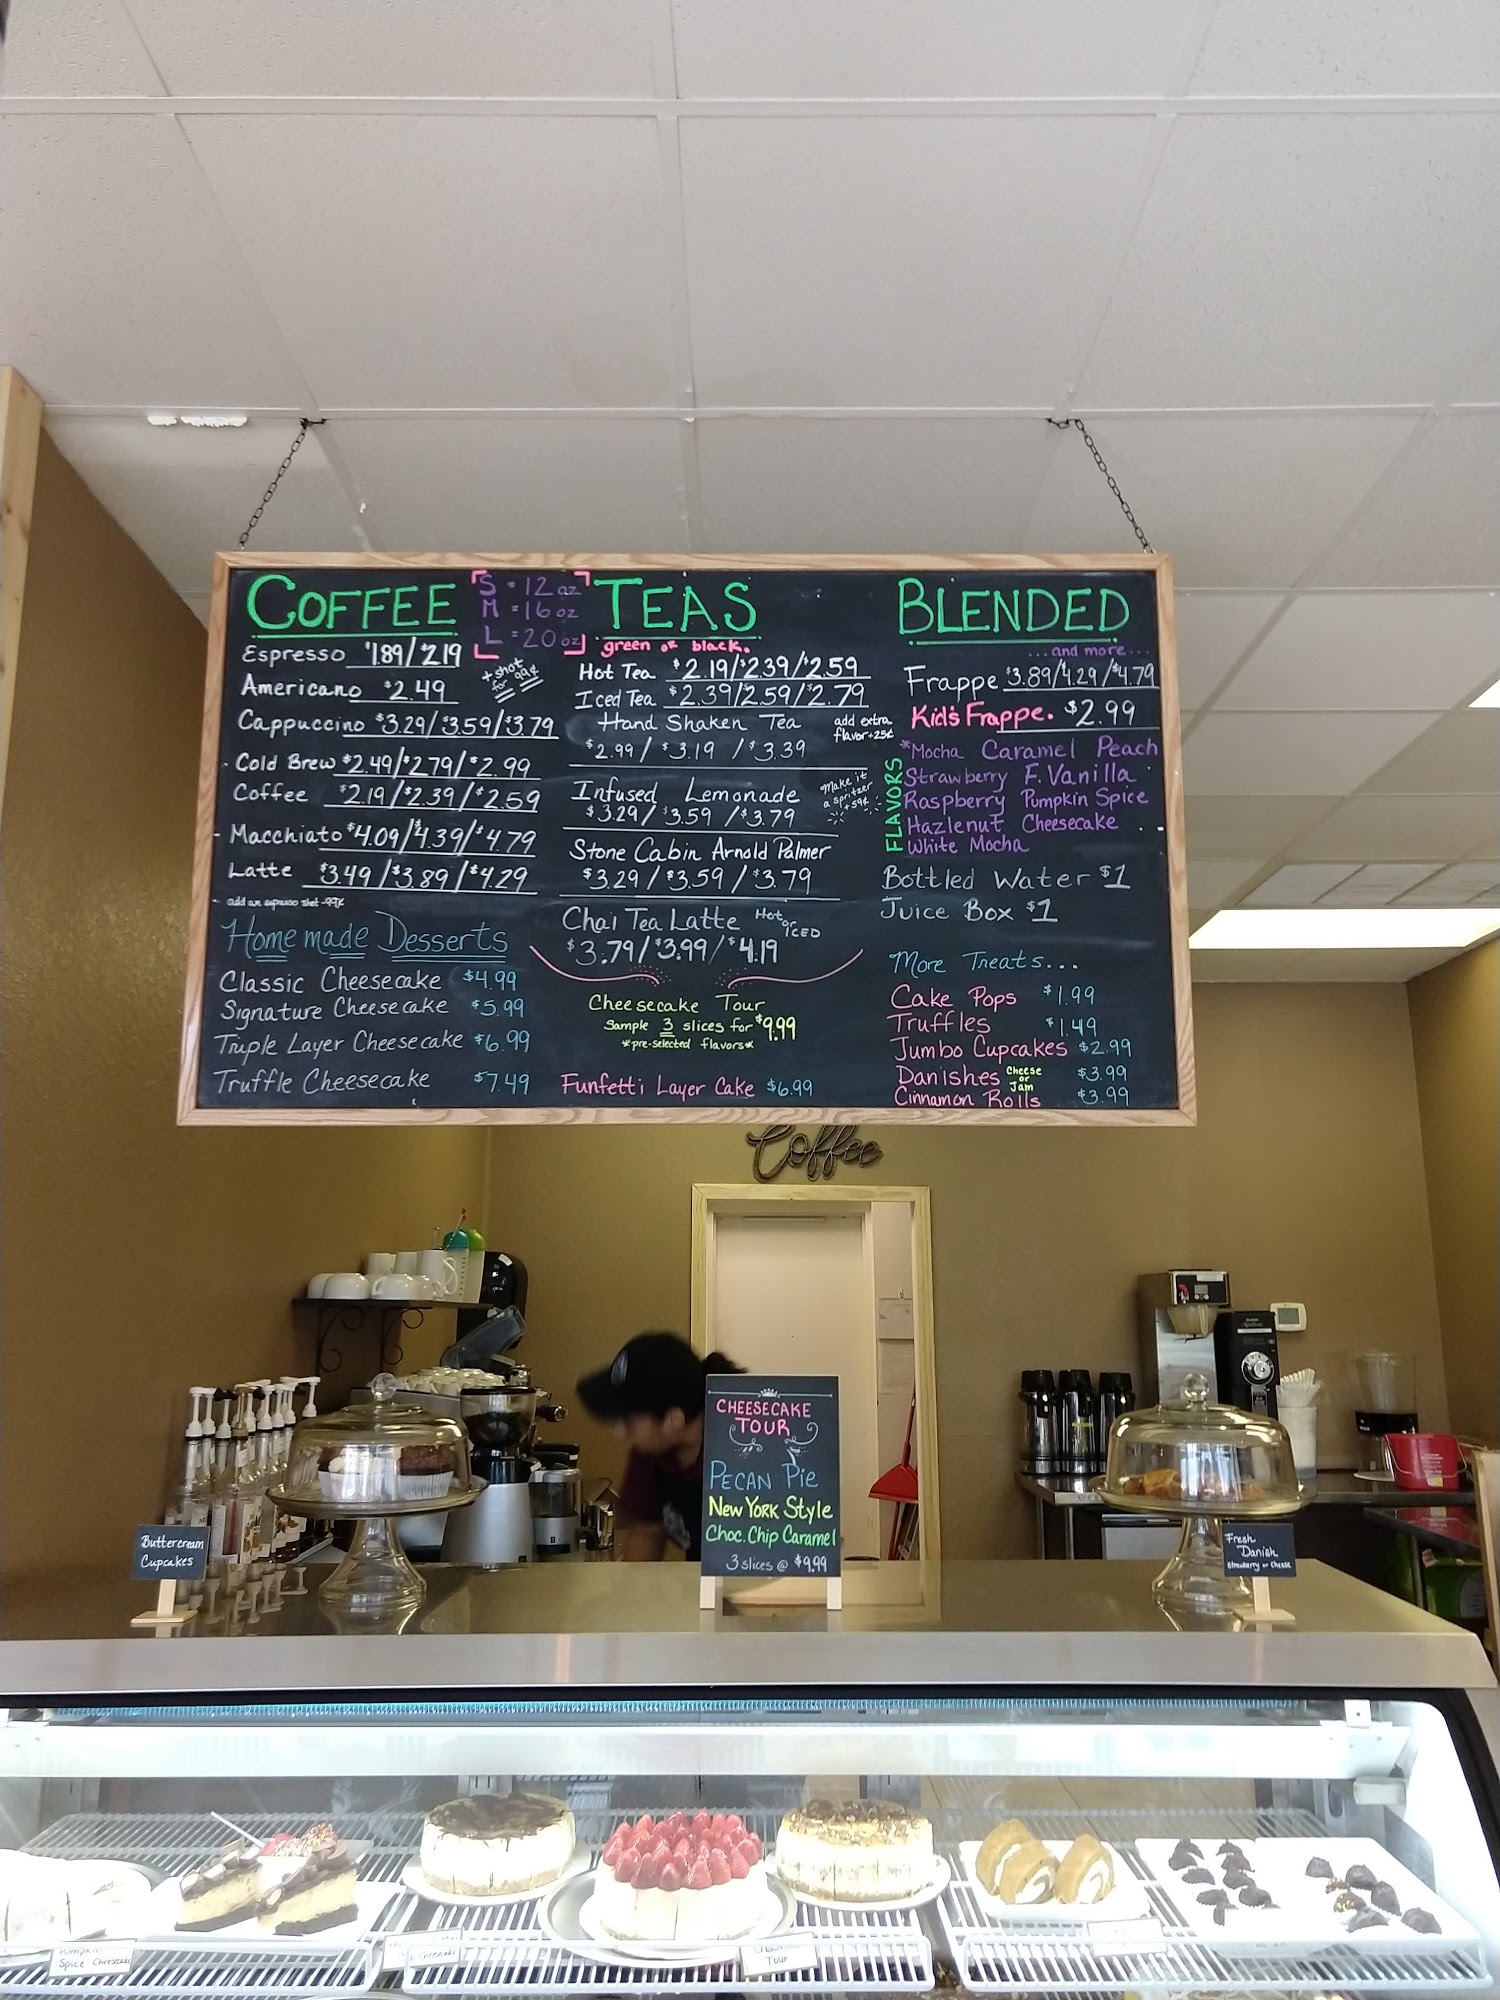 COFFEE
S = 12 oz
M = 16 oz
L = 20 oz
Espresso $1.89/$2.19
+ shot for 99¢
Americano $2.49
Cappuccino $3.29/$3.59/$3.79
Cold Brew $2.49/$2.79/$2.99
Coffee $2.19/$2.39/$2.59
Macchiato $4.09/$4.39/$4.79
Latte $3.49/$3.89/$4.29
add an espresso shot - 99¢
Homemade Desserts
Classic Cheesecake $4.99
Signature Cheesecake $5.99
Triple Layer Cheesecake $6.99
Truffle Cheesecake $7.49
TEAS
green or black.
Hot Tea $2.19/$2.39/$2.59
Iced Tea $2.39/$2.59/$2.79
Hand Shaken Tea
$2.99/$3.19/$3.39
add extra
flavor +25¢
Infused Lemonade
$3.29/$3.59/$3.79
Make it
a spritzer
+59¢
Stone Cabin Arnold Palmer
$3.29/$3.59/$3.79
Chai Tea Latte Hot or ICED
$3.79/$3.99/$4.19
Cheesecake Tour
Sample 3 slices for $9.99
*pre-selected flavors*
Funfetti Layer Cake $6.99
BLENDED
...and more...
Frappe $3.89/4.29/$4.79
Kid's Frappe. $2.99
FLAVORS
*Mocha Caramel Peach
Strawberry F. Vanilla
Raspberry Pumpkin Spice
Hazlenut Cheesecake
White Mocha
Bottled Water $1
Juice Box $1
More Treats...
Cake Pops $1.99
Truffles $1.49
Jumbo Cupcakes $2.99
Danishes Cheese or Jam $3.99
Cinnamon Rolls $3.99
Coffee
CHEESECAKE
TOUR
PECAN PIE
NEW YORK STYLE
CHOC. CHIP CARAMEL
3 slices @ $9.99
Buttercream
Cupcakes
Fresh
Danish
Strawberry or Cheese
Pumpkin
Spice Cheesecake
Tour